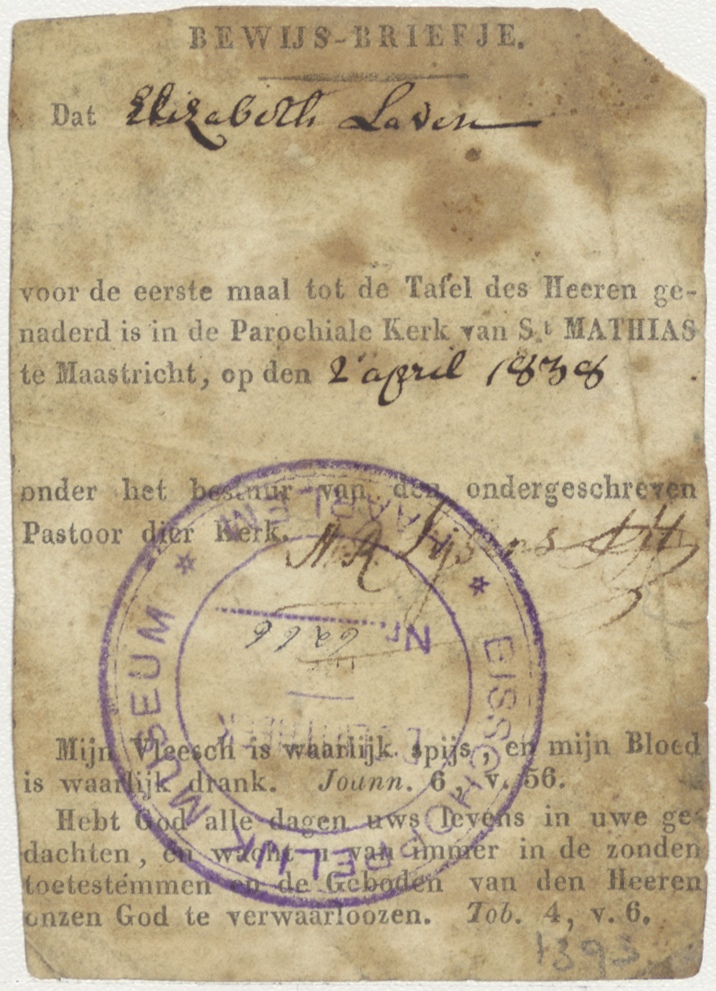 BEWIJS-BRIEFJE.
Dat Elizabeth Laven
voor de eerste maal tot de Tafel des Heeren ge-
naderd is in de Parochiale Kerk van S.t MATHIAS
te Maastricht, op den 2 april 1838
onder het bestuur van den ondergeschreven
Pastoor dier Kerk.
HAARLEM * BISSCHOPPELIJK MUSEUM *
Nr.
Mijn Vleesch is waarlijk spijs, en mijn Bloed
is waarlijk drank. Joann. 6, v. 56.
Hebt God alle dagen uws levens in uwe ge-
dachten, en wacht u van immer in de zonden
toetestémmen en de Geboden van den Heeren
onzen God te verwaarloozen. Tob. 4, v. 6.
1393